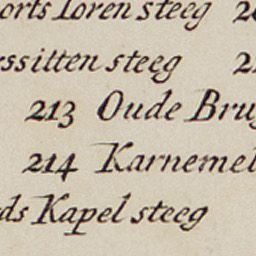 orts Toren steeg 2
ssitten steeg 2
213 Oude Bru
214 Karnemel
ds Kapel steeg